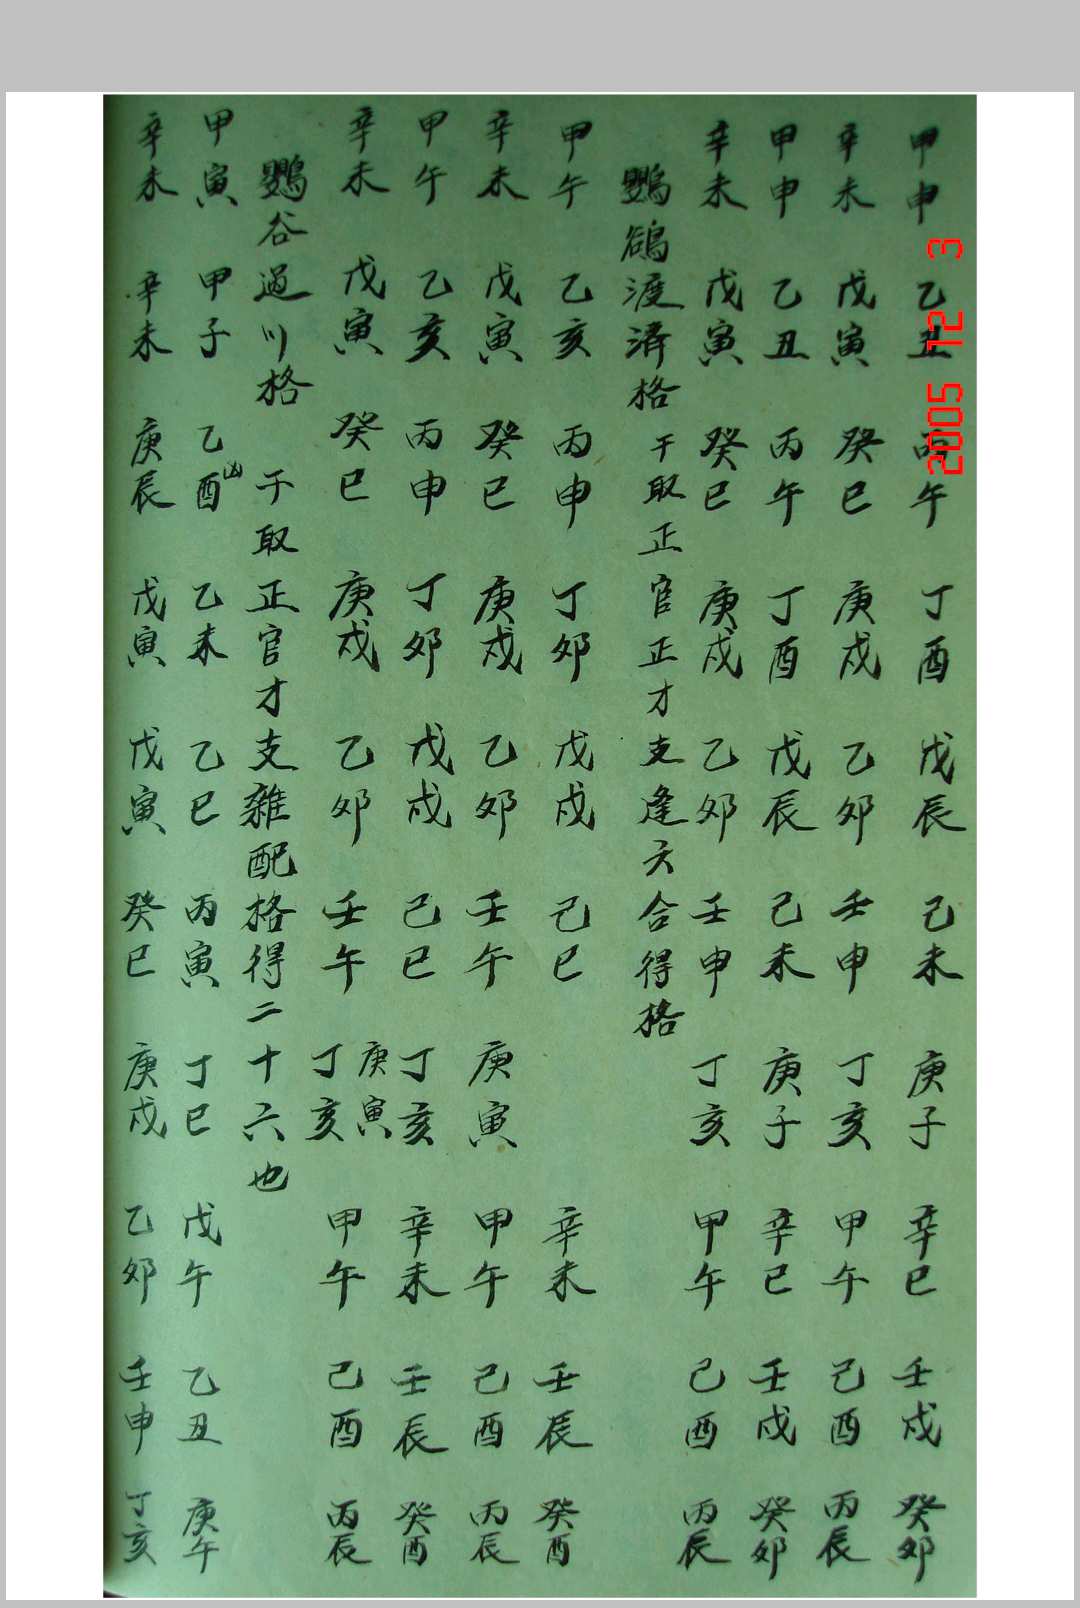 甲申 乙丑 丙午 丁酉 戊辰 己未 庚子 辛巳 壬戌 癸卯
辛未 戊寅 癸巳 庚戌 乙卯 壬申 丁亥 甲午 己酉 丙辰
甲申 乙丑 丙午 丁酉 戊辰 己未 庚子 辛巳 壬戌 癸卯
辛未 戊寅 癸巳 庚戌 乙卯 壬申 丁亥 甲午 己酉 丙辰
鸚鵒渡济格 干取正官正才支逢六合得格
甲午 乙亥 丙申 丁卯 戊戌 己巳 辛未 壬辰 癸酉
辛未 戊寅 癸巳 庚戌 乙卯 壬午 庚寅 甲午 己酉 丙辰
甲午 乙亥 丙申 丁卯 戊戌 己巳 丁亥 辛未 壬辰 癸酉
庚寅
辛未 戊寅 癸巳 庚戌 乙卯 壬午 丁亥 甲午 己酉 丙辰
鸚谷過川格 干取正官才支雜配格得二十六也
甲寅 甲子 乙酉 乙未 乙巳 丙寅 丁巳 戊午 乙丑 庚午
凶
辛未 辛未 庚辰 戊寅 戊寅 癸巳 庚戌 乙卯 壬申 丁亥
2005 12 3